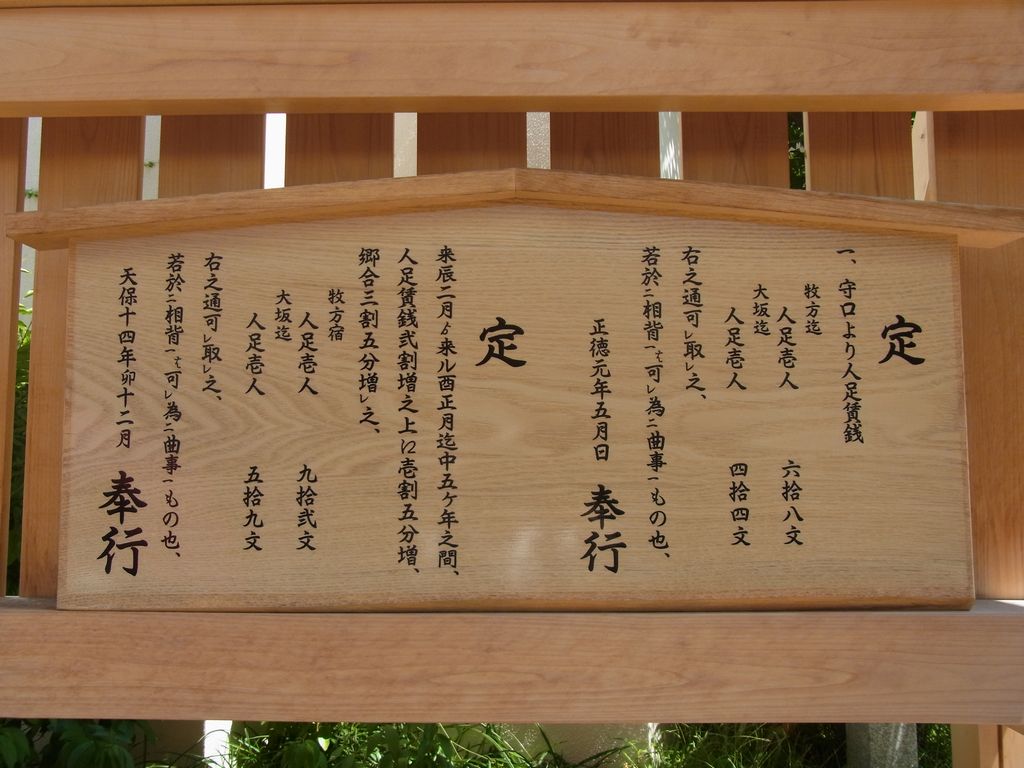 定
一、守口より人足賃銭
牧方迄
人足壱人 六拾八文
大坂迄
人足壱人 四拾四文
右之通可レ取レ之、
若於ニ相背一ハ可レ為ニ曲事一もの也、
正徳元年五月日 奉行
定
来辰二月ゟ来ル酉正月迄中五ケ年之間、
人足賃銭弐割増之上に壱割五分増、
郷合三割五分増レ之、
牧方宿
人足壱人 九拾弐文
大坂迄
人足壱人 五拾九文
右之通可レ取レ之、
若於ニ相背一ハ可レ為ニ曲事一もの也、
天保十四年卯十二月 奉行